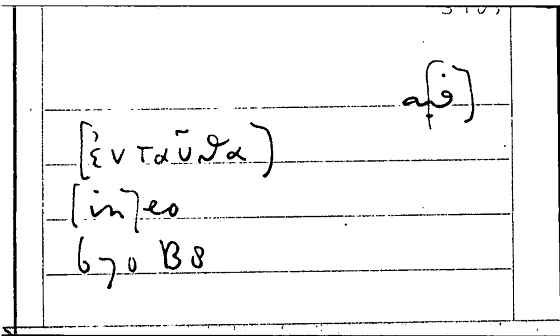 [ἐνταῦθα]
[in]eo
670 B8